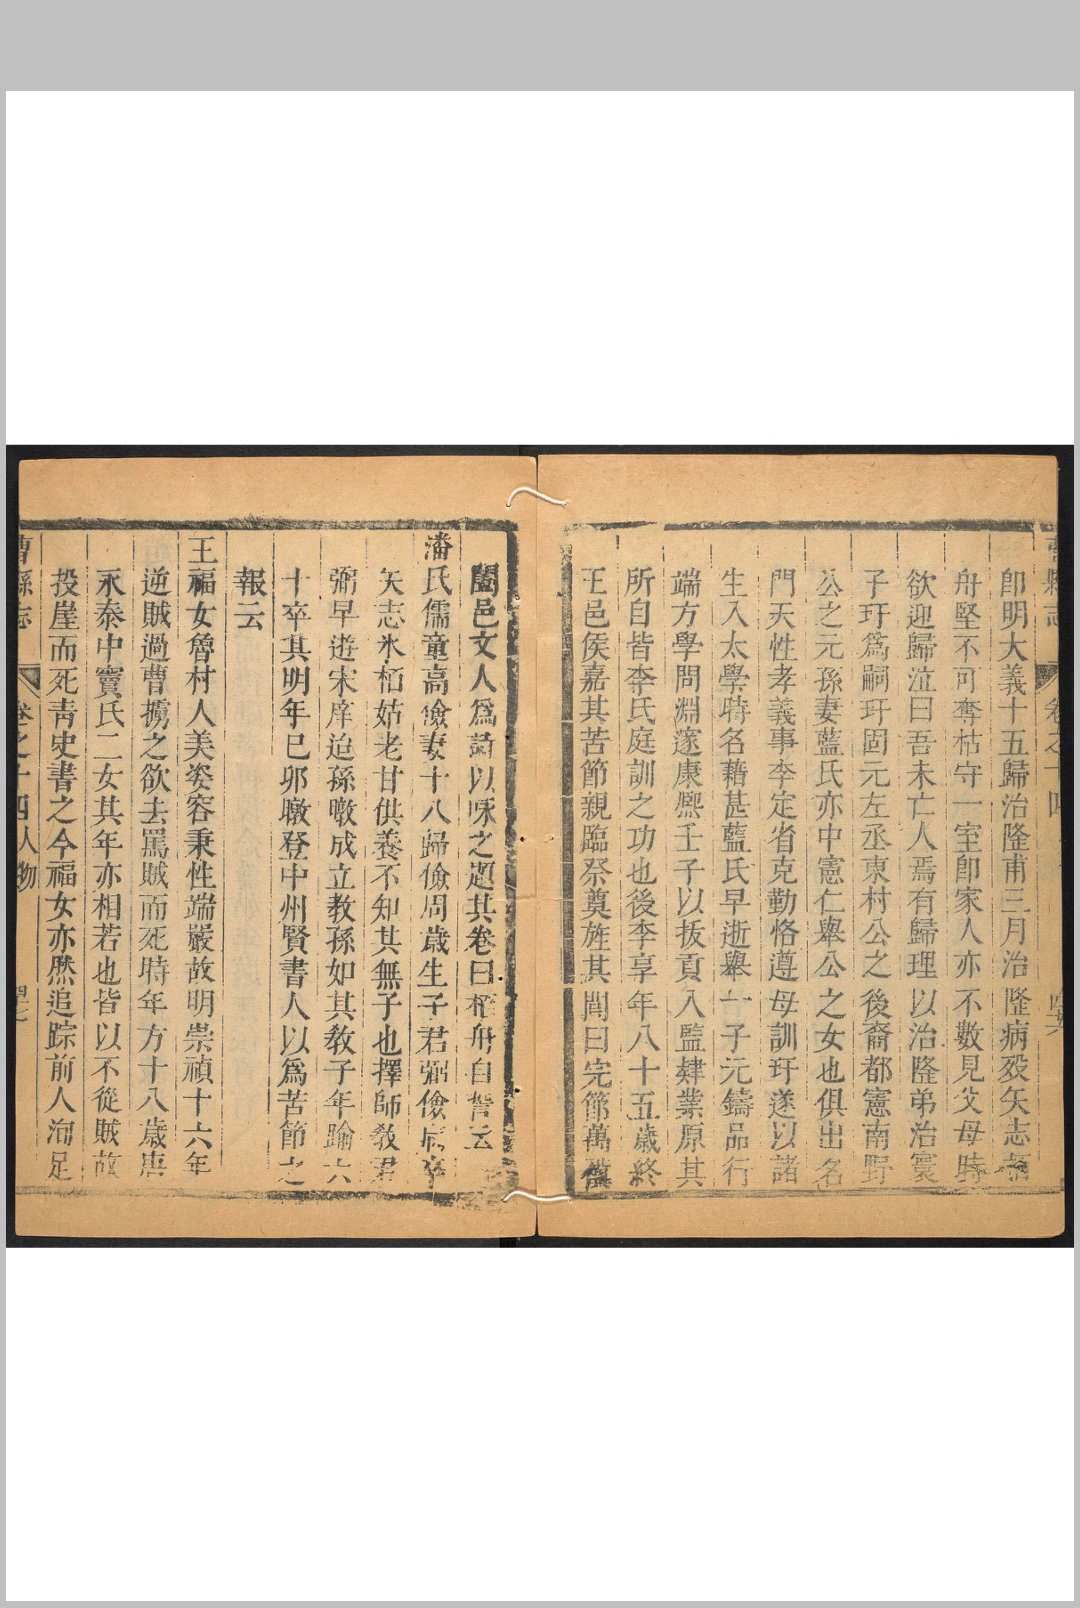 曹縣志 卷之十四
卽明大義十五歸治隆甫三月治隆病歿矢志栢
舟堅不可奪枯守一室卽家人亦不數見父母時
欲迎歸泣曰吾未亡人焉有歸理以治隆弟治寰
子玗爲嗣玗固元左丞東村公之後裔都憲南野
公之元孫妻藍氏亦中憲仁舉公之女也俱出名
門天性孝義事李定省克勤恪遵母訓玗遂以諸
生入太學時名藉甚藍氏早逝舉一子元鑄品行
端方學問淵邃康熙壬子以拔貢入監肄業原其
所自皆李氏庭訓之功也後李享年八十五歲終
王邑侯嘉其苦節親臨祭奠旌其閭曰完節萬
闔邑文人爲詩以咏之題其卷曰栢舟自誓云
潘氏儒童高儉妻十八歸儉周歲生子君弼儉病卒
矢志氷栢姑老甘供養不知其無子也擇師敎君
弼早遊宋庠迨孫暾成立教孫如其敎子年踰六
十卒其明年巳卯暾登中州賢書人以爲苦節之
報云
王福女魯村人美姿容秉性端嚴故明崇禎十六年
逆賊過曹擄之欲去罵賊而死時年方十八歲唐
永泰中竇氏二女其年亦相若也皆以不從賊故
投崖而死靑史書之今福女亦然追踪前人洵足
曹縣志 卷之十四人物